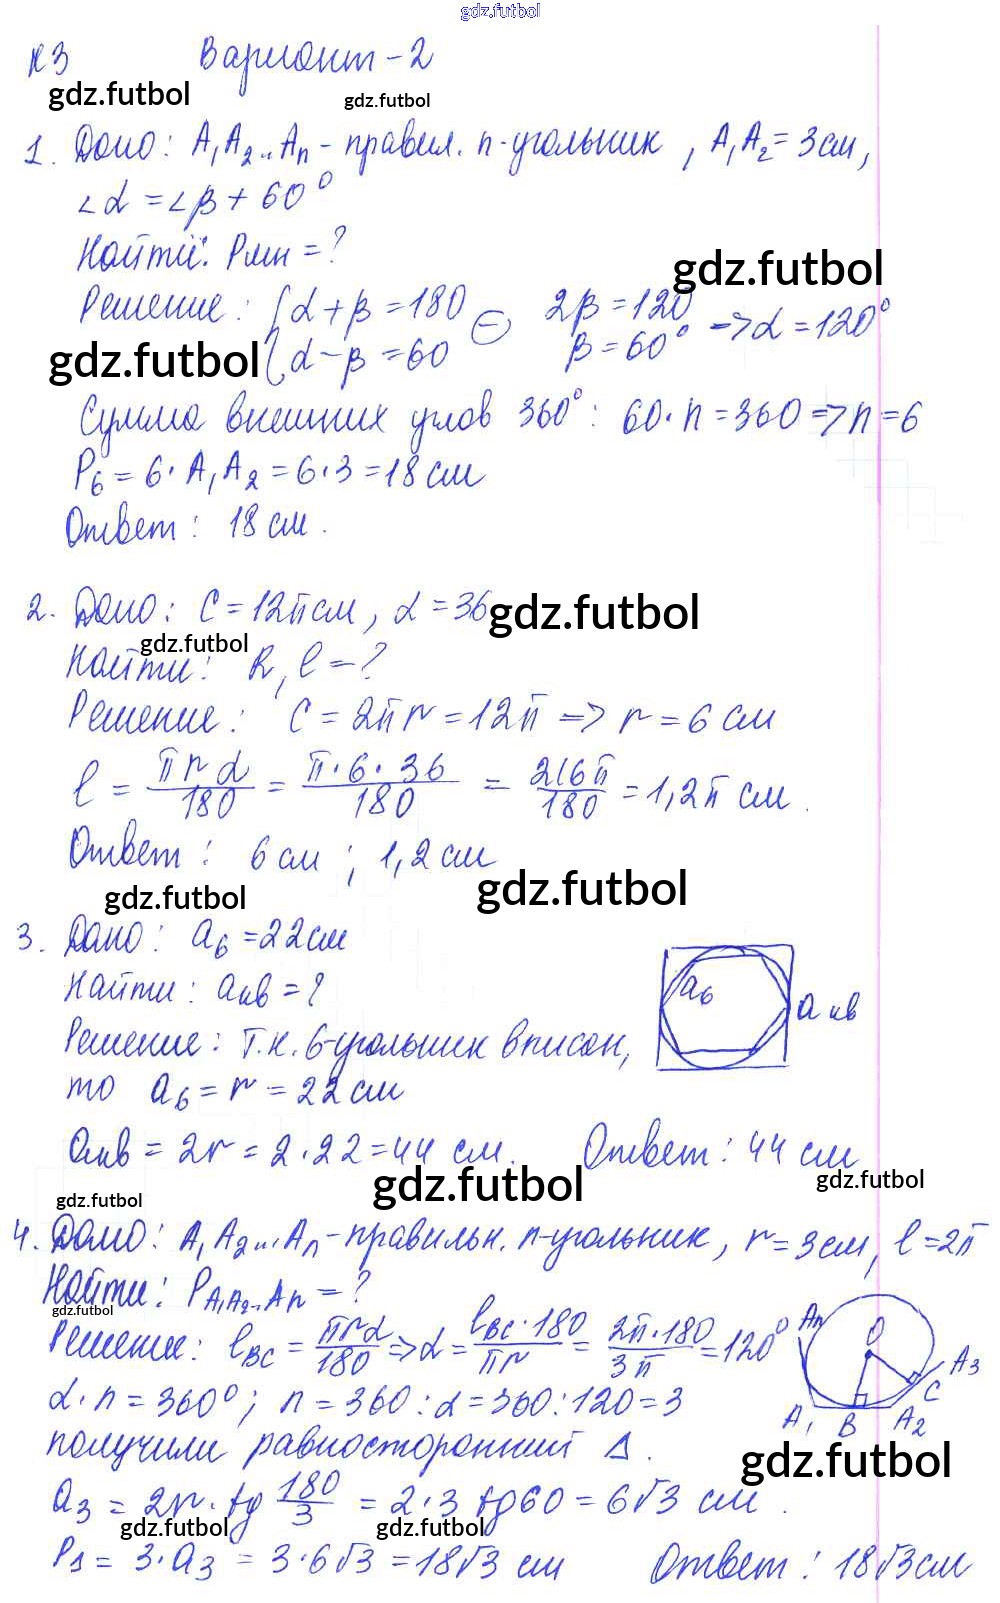 gdz.futbol
К3 Вариант-2
gdz.futbol gdz.futbol
1. Дано: A₁A₂...Aₙ - правил. n-угольник, A₁A₂ = 3см,
∠α = ∠β + 60°
Найти: Pмн = ?
gdz.futbol
Решение: { α + β = 180 ⊖ 2β = 120 => α = 120°
gdz.futbol { α - β = 60 β = 60°
Сумма внешних углов 360°: 60·n = 360 => n = 6
P₆ = 6·A₁A₂ = 6·3 = 18 см
Ответ: 18 см.
2. Дано: C = 12π см, α = 36 gdz.futbol
gdz.futbol
Найти: R, l - ?
Решение: C = 2πr = 12π => r = 6 см
l = πrα/180 = π·6·36/180 = 216π/180 = 1,2π см.
Ответ: 6 см; 1,2 см
gdz.futbol gdz.futbol
3. Дано: a₆ = 22см
Найти: aкв = ?
a₆ aкв
Решение: Т.к. 6-угольник вписан,
то a₆ = r = 22 см
aкв = 2r = 2·22 = 44 см. Ответ: 44 см
gdz.futbol gdz.futbol gdz.futbol
4. Дано: A₁A₂...Aₙ - правильн. n-угольник, r = 3см, l = 2π
Найти: P A₁A₂...Aₙ = ?
gdz.futbol
Решение: l BC = πrα/180 => α = l BC·180/πr = 2π·180/3π = 120°
Aₙ O A₃ C A₁ B A₂
α·n = 360°; n = 360:α = 360:120 = 3
получили равносторонний Δ.
gdz.futbol
a₃ = 2r·tg 180/3 = 2·3 tg60 = 6√3 см.
gdz.futbol gdz.futbol
P₁ = 3·a₃ = 3·6√3 = 18√3 см Ответ: 18√3см